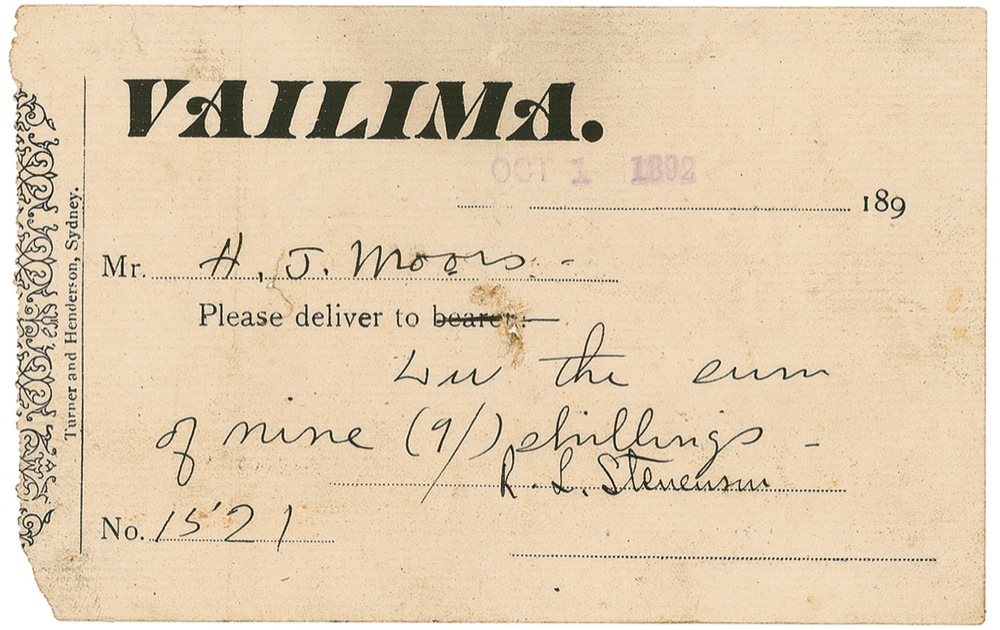 VAILIMA.
OCT 1 1892
189
Mr. H. J. Moors -
Please deliver to bearer:—
Lui the sum
of nine (9/) shillings -
R. L. Stevenson
No. 1521
Turner and Henderson, Sydney.